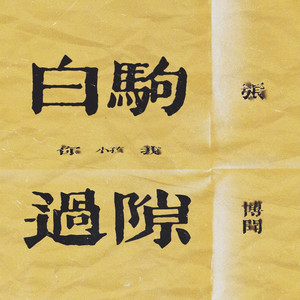 白駒
你 小孩 我
過隙
張
博聞